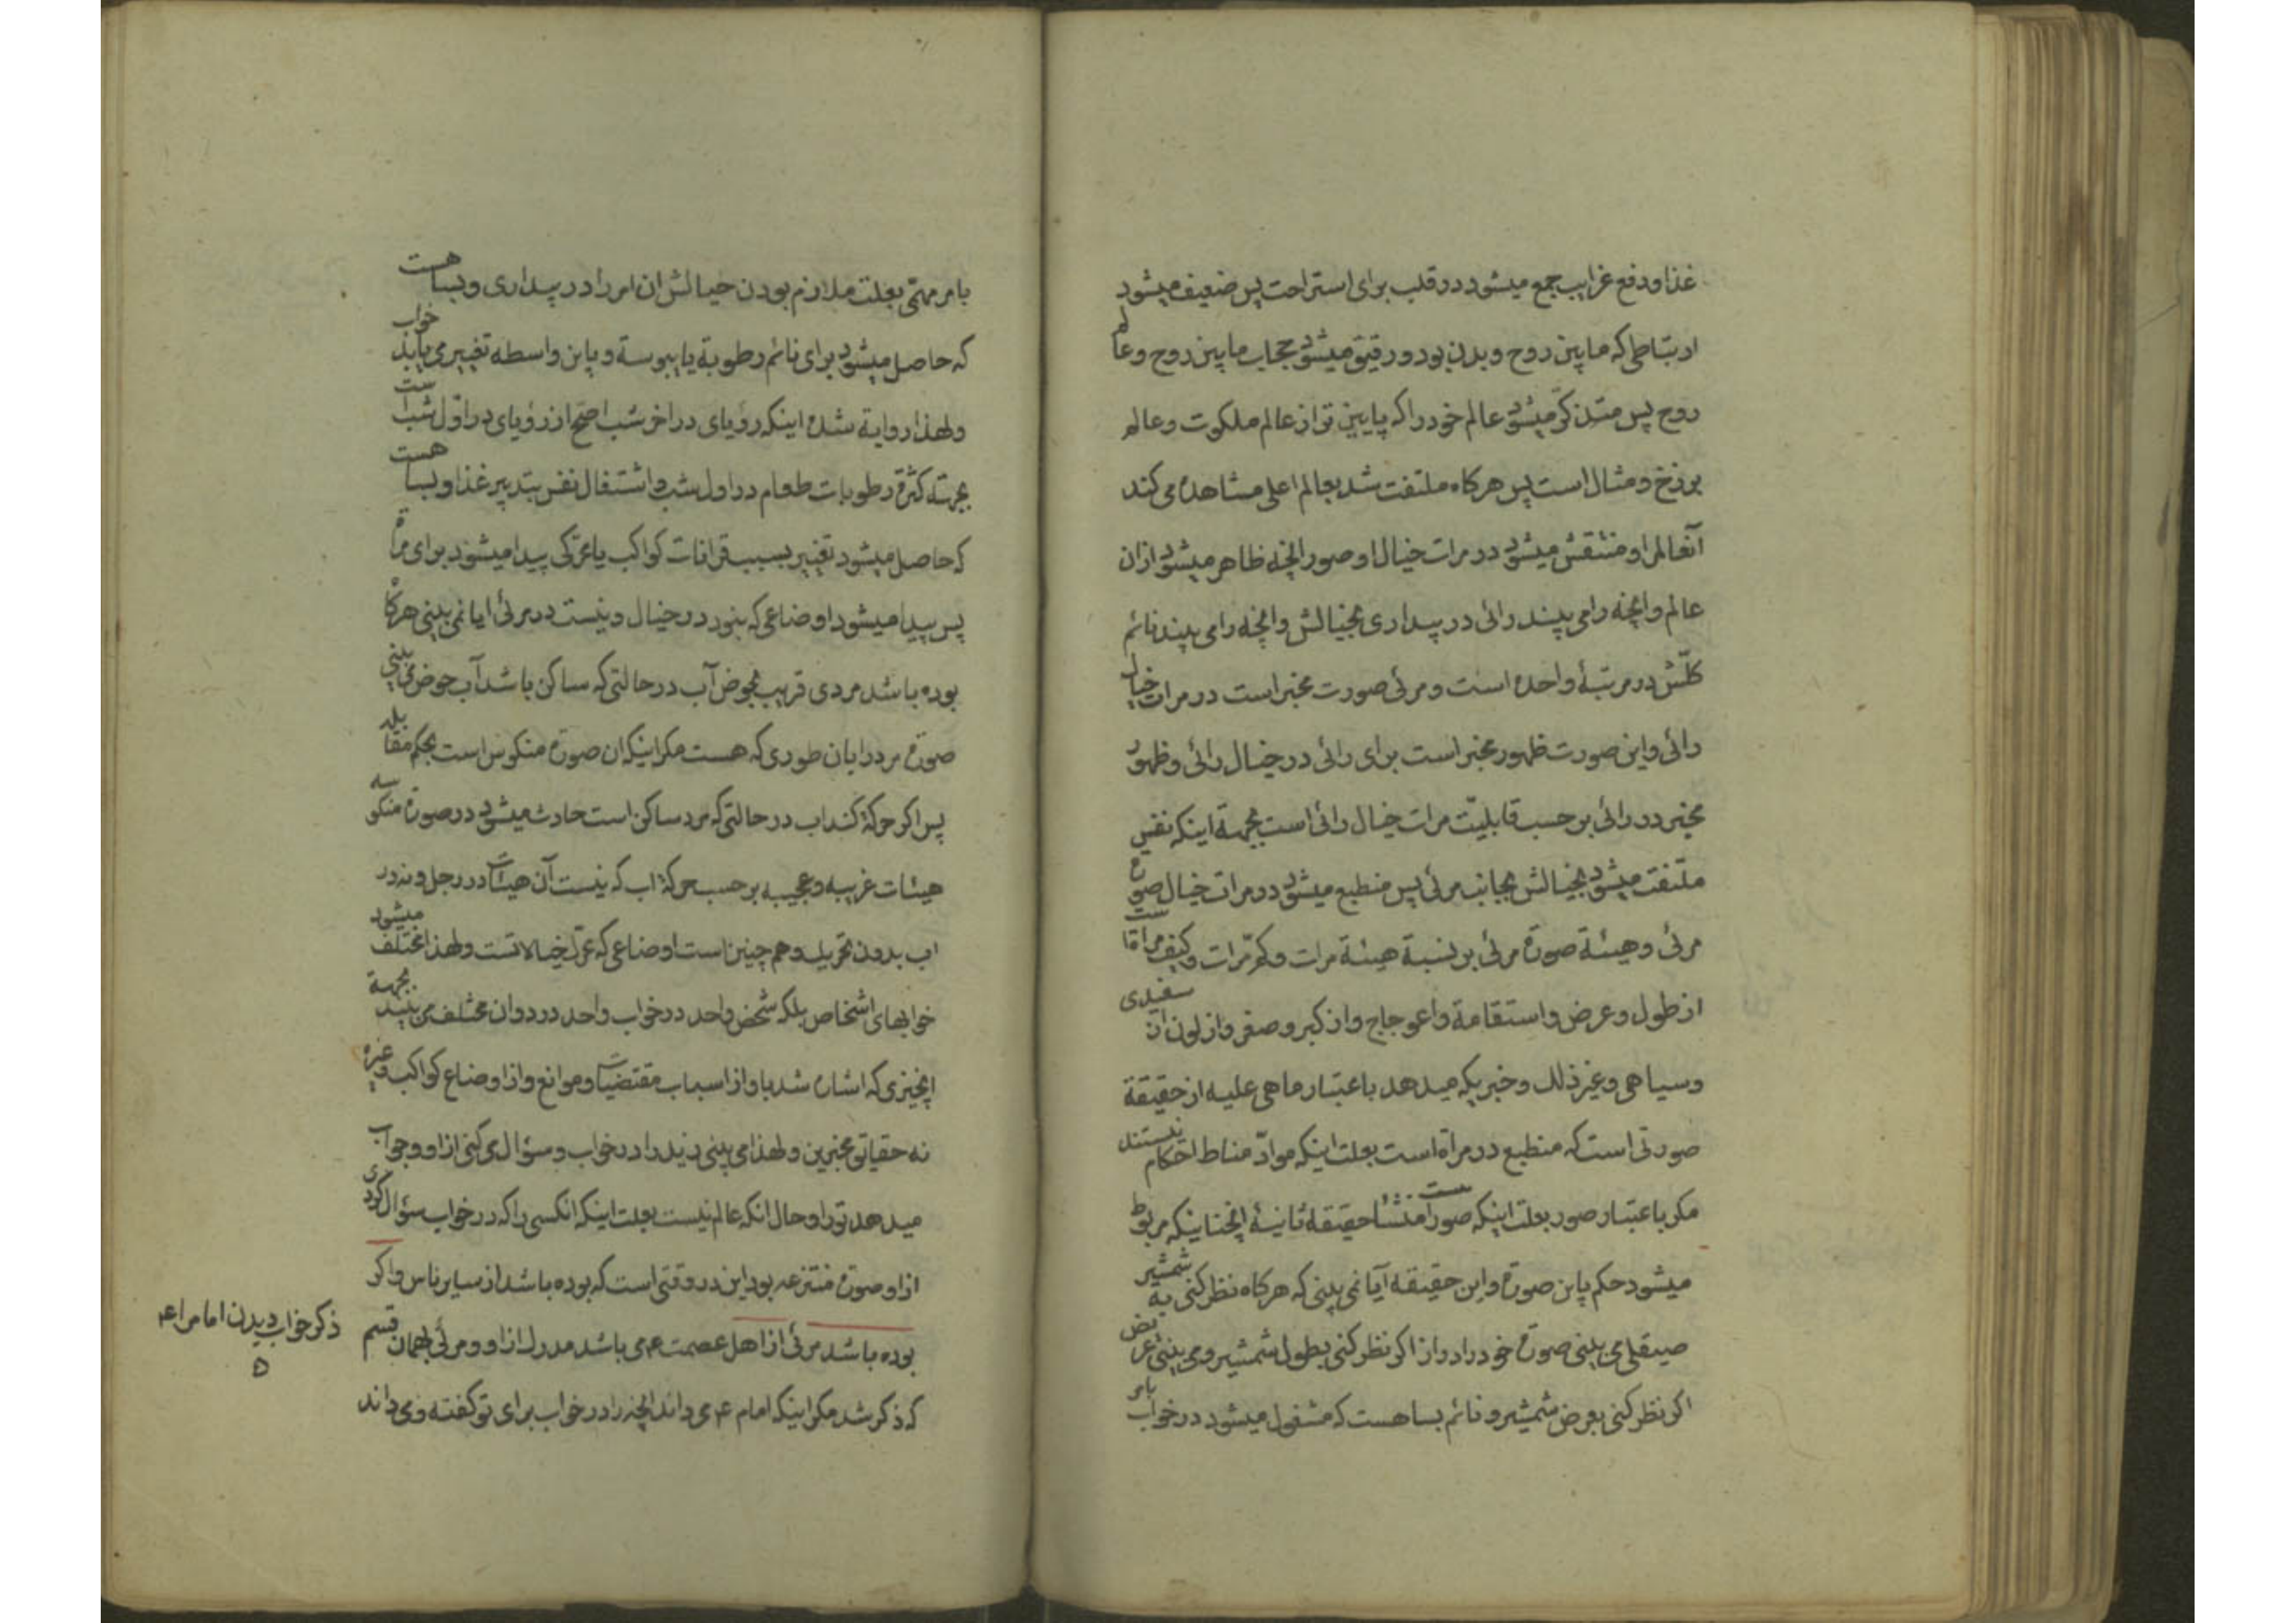 غذا و دفع غرایب جمع میشود در قلب برای استراحت پس ضعیف میشود
ارتباطی که ما بین روح و بدن بود و رقیق میشود حجاب ما بین روح و عالم
روح پس متذکّر میشود عالم خود را که پایین تر از عالم ملکوت و عالم
برزخ و مثال است پس هرکاه ملتفت شد بعالم اعلی مشاهده می کند
آنعالمرا و منتقش میشود در مرات خیال او صور انچه ظاهر میشود ازان
عالم و انچه را می بیند رائی در بیداری بخیالش و انچه را می بیند نائم
کلّش در مرتبۀ واحده است و مرئی صورت مخبر است در مرات خیال
رائی و این صورت ظهور مخبر است برای رائی در خیال رائی و ظهور
مخبر در رائی بر حسب قابلیّت مرات خیال رائی است بجهة اینکه نفس
ملتفت میشود بخیالش بجانب مرئی پس منطبع میشود در مرات خیال صورة
مرئی و هیئة صورة مرئی بر نسبة هیئة مرات و کم مرات و کیف مراتست
از طول و عرض و استقامة و اعوجاج و از کبر و صغر و از لون ان سفیدی
و سیاهی و غیر ذلک و خبریکه میدهد باعتبار ما هی علیه از حقیقة
صورتی است که منطبع در مرآة است بعلت اینکه موادّ مناط احکام نیستند
مکر باعتبار صور بعلت اینکه صور منشأ حقیقة ثانیۀ انچنانیکه مربوط
میشود حکم باین صورة و این حقیقة آیا نمی بینی که هرکاه نظر کنی به شمشیر
صیقلی می بینی صورة خود را دراز اکر نظر کنی بطول شمشیر و می بینی عریض
اکر نظر کنی بعرض شمشیر و نائم بسا هست که مشغول میشود در خواب بامر
بامر مهمّی بعلت ملازم بودن خیالش ان امر را در بیداری و بسا هست
که حاصل میشود برای نائم رطوبة یا یبوسة و باین واسطه تغییر می یابد خواب
و لهذا روایة شده اینکه رؤیای در اخر شب اصحّ از رؤیای در اوّل شب است
بجهة کثرة رطوبات طعام در اول شب و اشتغال نفس بتدبیر غذا و بسا هست
که حاصل میشود تغییر بسبب قرانات کواکب یا محرّکی پیدا میشود برای مرآة
پس پیدا میشود اوضاعی که نبود در خیال و نیست در مرئی ایا نمی بینی هرکاه
بوده باشد مردی قریب بحوض آب در حالتی که ساکن باشد آب حوض می بینی
صورة مرد را بان طوری که هست مکر اینکه ان صورة منکوس است بحکم مقابله
پس اکر حرکة کند اب در حالتی که مرد ساکن است حادث میشود در صورة منکوسه
هیئات غریبه و عجیبه بر حسب حرکة اب که نیست آن هیئات در رجل و نه در
اب بدون تحریک و هم چنین است اوضاعی که محرّک خیالاتست و لهذا مختلف میشود
خوابهای اشخاص بلکه شخص واحد در خواب واحد در دو ان مختلف می بیند بجهة
انچیزی که اشاره شد باو از اسباب مقتضیات و موانع و از اوضاع کواکب و غیره
نه حقیاتی مخبرین و لهذا می بینی زید را در خواب و سؤال می کنی از او و جواب
میدهد تو را و حال انکه عالم نیست بعلت اینکه انکسی را که در خواب سؤال کردی
از او صورة منتزعه بود این در وقتی است که بوده باشد از سایر ناس و اکر
بوده باشد مرئی از اهل عصمت ع می باشد مدرک از او و مرئی بهمان قسم
که ذکر شد مکر اینکه امام ع می داند انچه را در خواب برای تو کفته و می داند
ذکر خواب دیدن امام را ع